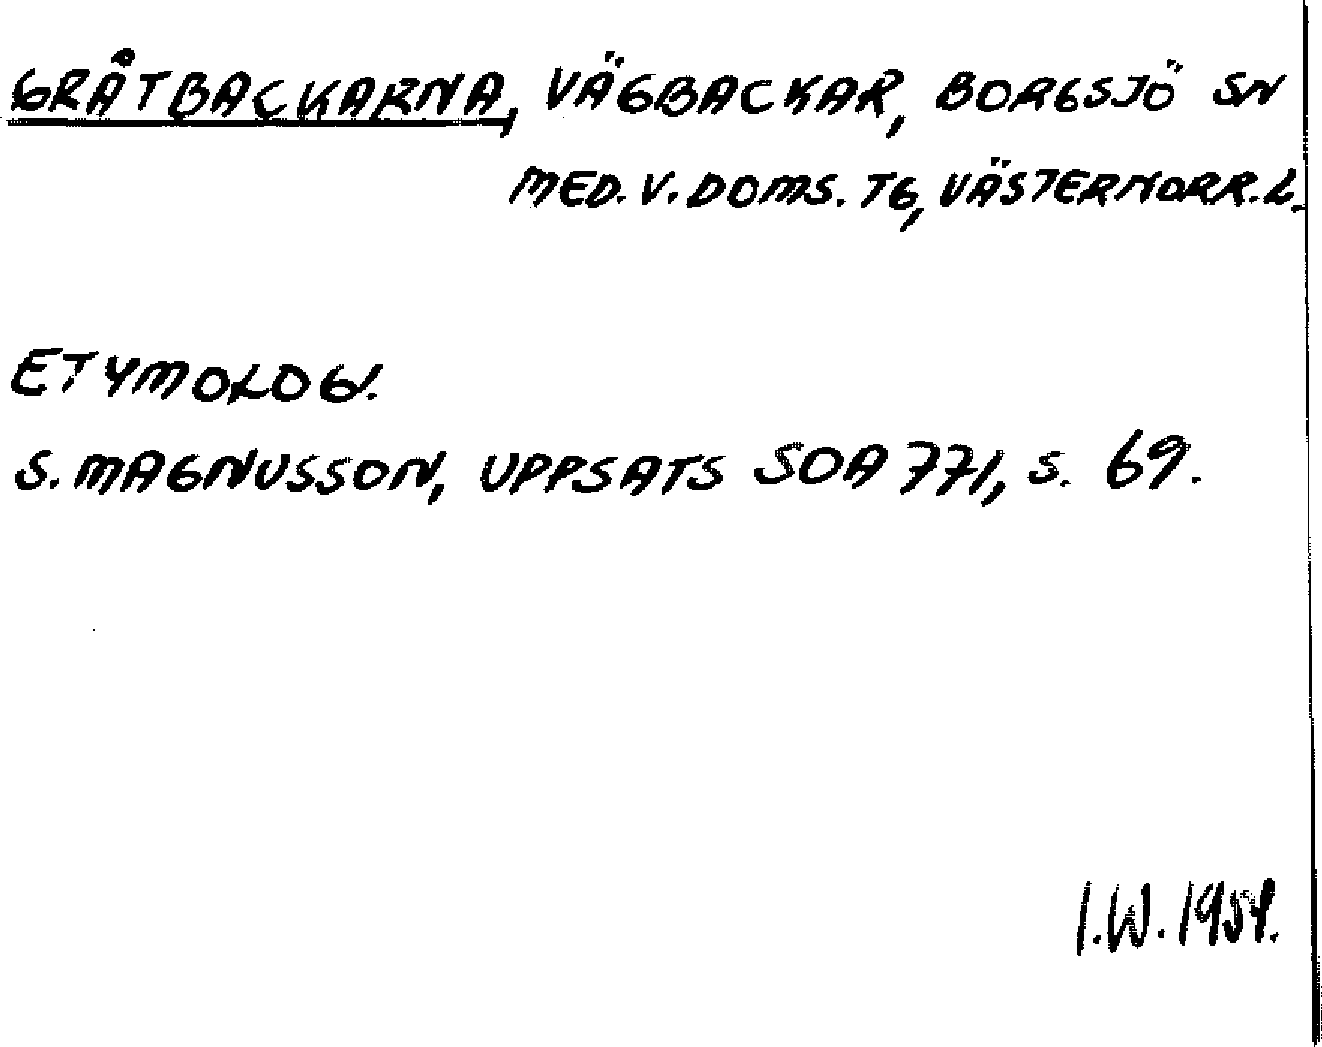 GRÅTBACKARNA, VÄGBACKAR, BORGSJÖ SN
MED. V. DOMS. TG, VÄSTERNORR. L.
ETYMOLOGI.
S. MAGNUSSON, UPPSATS SOA 771, S. 69.
I.W. 1959.